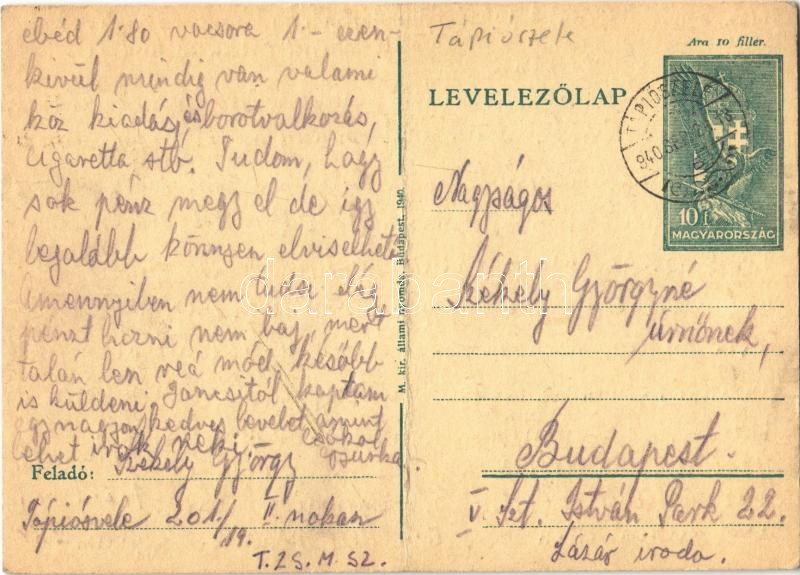 ebéd 1.80 vacsora 1.- ezen-
kivül mindig van valami
köz kiadás, és borotválkozás,
cigaretta stb. Tudom, hogy
sok pénz megy el de igy
legalább könnyen elviselhető
amennyiben nem tudsz elég
pénzt hozni nem baj, mert
talán lesz reá mód később
is küldeni. Jancsitól kaptam
egy nagyon kedves levelet, amint
lehet irok neki. Csókol
Feladó: Székely György
Tápiószele 201/19. II.
T. ZS. M. SZ.
M. kir. állami nyomda, Budapest. 1940.
Tápiószele
Ara 10 fillér.
LEVELEZŐLAP
TÁPIÓSZELE
940
10 f
MAGYARORSZÁG
Nagyságos
Székely Györgyné
úrnőnek,
Budapest.
V. Szt. István Park 22.
Lázár iroda.
darabanth